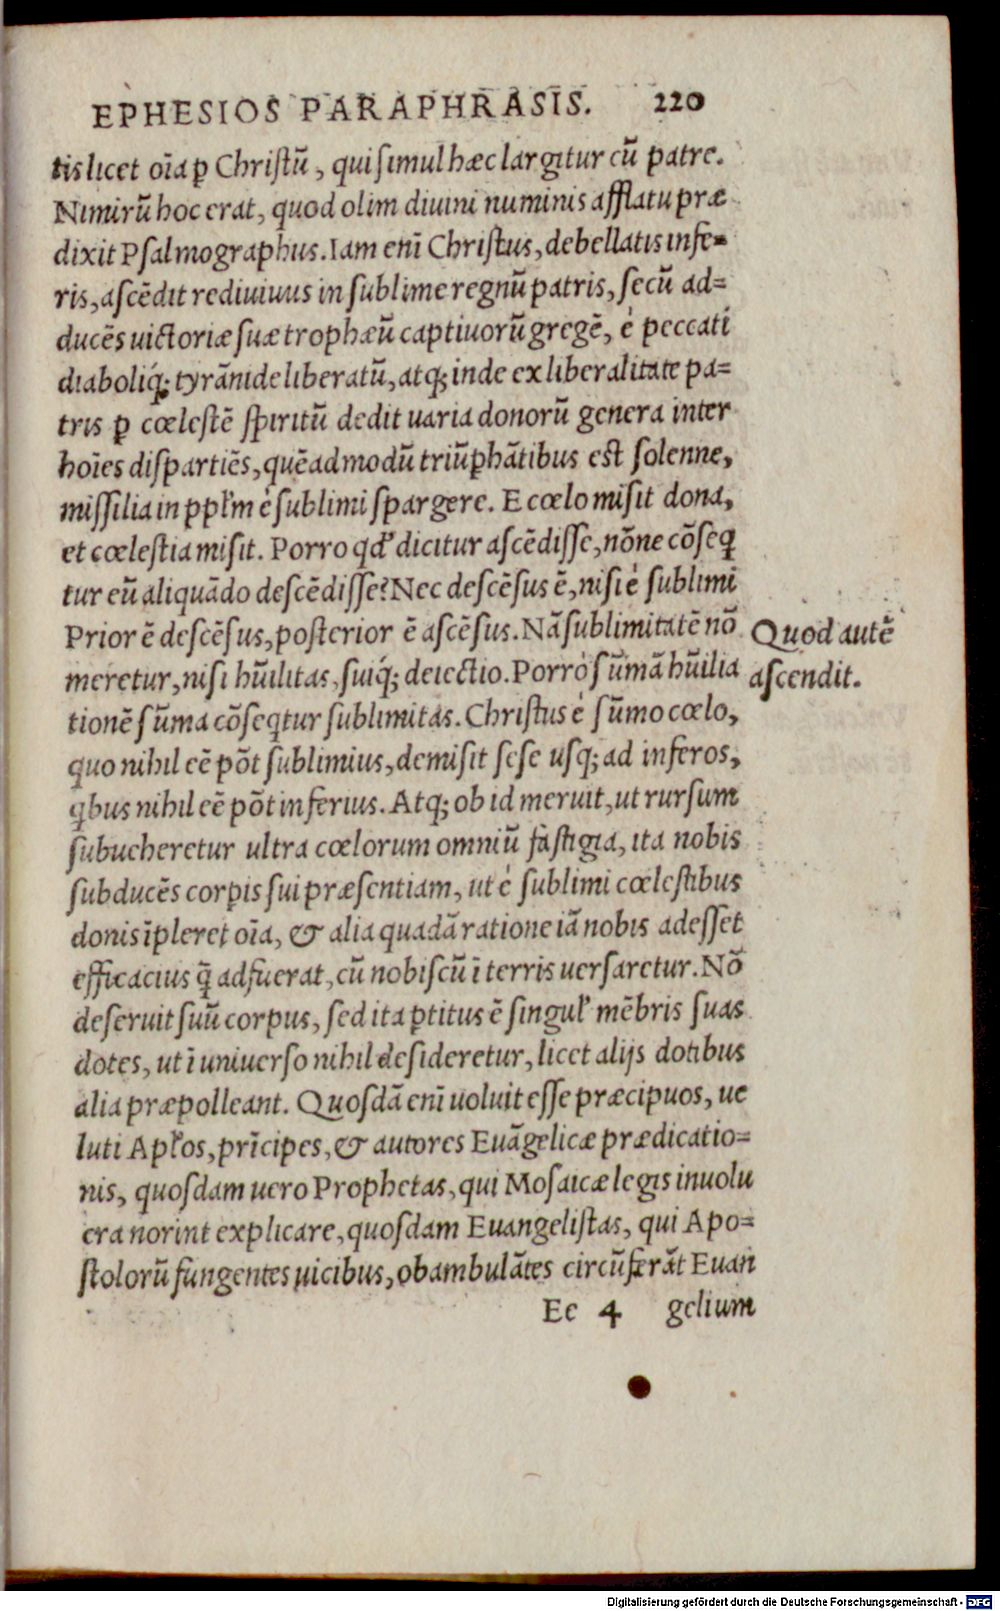 EPHESIOS PARAPHRASIS. 220
tis licet oīa ꝑ Christū, qui simul hæc largitur cū patre.
Nimirū hoc erat, quod olim diuini numinis afflatu præ
dixit Psalmographus. Iam enī Christus, debellatis infe-
ris, ascēdit rediuiuus in sublime regnū patris, secū ad=
ducēs uictoriæ suæ trophæū captiuorū gregē, è peccati
diaboliq́; tyrānide liberatū, atq; inde ex liberalitate pa=
tris ꝑ cœlestē spiritū dedit uaria donorū genera inter
hoīes dispartiēs, quēadmodū triūphātibus est solenne,
missilia in pp̄lm è sublimi spargere. E cœlo misit dona,
et cœlestia misit. Porro qđ dicitur ascēdisse, nōne cōseq̄
tur eū aliquādo descēdisse? Nec descēsus ē, nisi è sublimi
Prior ē descēsus, posterior ē ascēsus. Nā sublimitatē nō
meretur, nisi hūilitas, suiq́; deiectio. Porrò sūmā hūilia
tionē sūma cōseq̄tur sublimitas. Christus è sūmo cœlo,
quo nihil eē pōt sublimius, demisit sese usq; ad inferos,
q̄bus nihil eē pōt inferius. Atq; ob id meruit, ut rursum
subueheretur ultra cœlorum omniū fastigia, ita nobis
subducēs corpis sui præsentiam, ut è sublimi cœlestibus
donis īpleret oīa, & alia quadā ratione iā nobis adesset
efficacius q̄ adfuerat, cū nobiscū ī terris uersaretur. Nō
deseruit suū corpus, sed ita ꝑtitus ē singuł mēbris suas
dotes, ut ī uniuerso nihil desideretur, licet alijs dotibus
alia præpolleant. Quosdā enī uoluit esse præcipuos, ue
luti Apłos, prīcipes, & autores Euāgelicæ prædicatio=
nis, quosdam uero Prophetas, qui Mosaicæ legis inuolu
cra norint explicare, quosdam Euangelistas, qui Apo=
stolorū fungentes uicibus, obambulātes circūferāt Euan
Ee 4 gelium
Quod autē
ascendit.
Digitalisierung gefördert durch die Deutsche Forschungsgemeinschaft - DFG